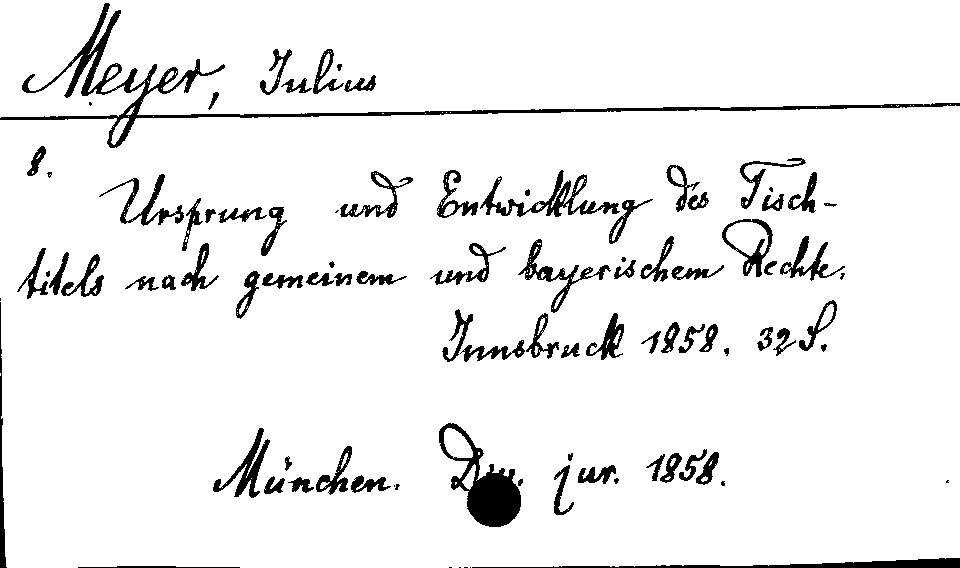 Meyer, Julius
8.
Ursprung und Entwicklung des Tisch-
titels nach gemeinem und bayerischem Rechte.
Innsbruck 1858. 32 S.
München. jur. 1858.